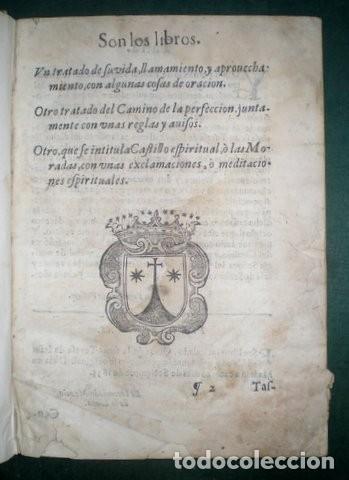 Son los libros.
Vn tratado de su vida, llamamiento, y aprouecha-
miento, con algunas cosas de oracion.
Otro tratado del Camino de la perfeccion, junta-
mente con vnas reglas y auisos.
Otro, que se intitula Castillo espiritual, ò las Mo-
radas, con vnas exclamaciones, ò meditacio-
nes espirituales.
¶ 2 Tas-
todocoleccion.net